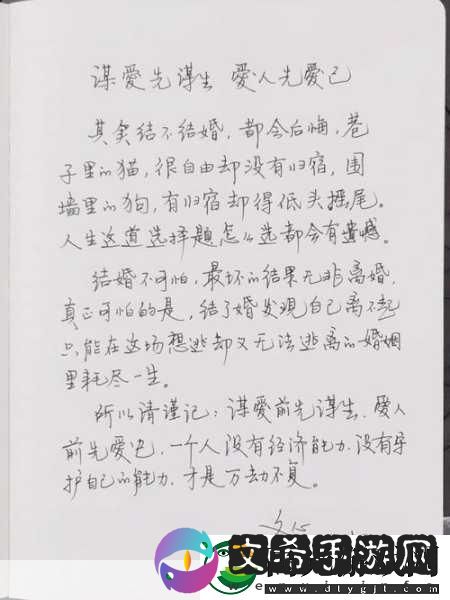 谋爱先谋生 爱人先爱己
其实结不结婚，都会后悔，巷
子里的猫，很自由却没有归宿，围
墙里的狗，有归宿却得低头摇尾。
人生这道选择题怎么选都会有遗憾。
结婚不可怕，最坏的结果无非离婚，
真正可怕的是，结了婚发现自己离不起
只能在这场想逃却又无法逃离的婚姻
里耗尽一生。
所以请谨记：谋爱前先谋生，爱人
前先爱己，一个人没有经济能力，没有保
护自己的能力，才是万劫不复。
文希手游网
www.dtygjt.com